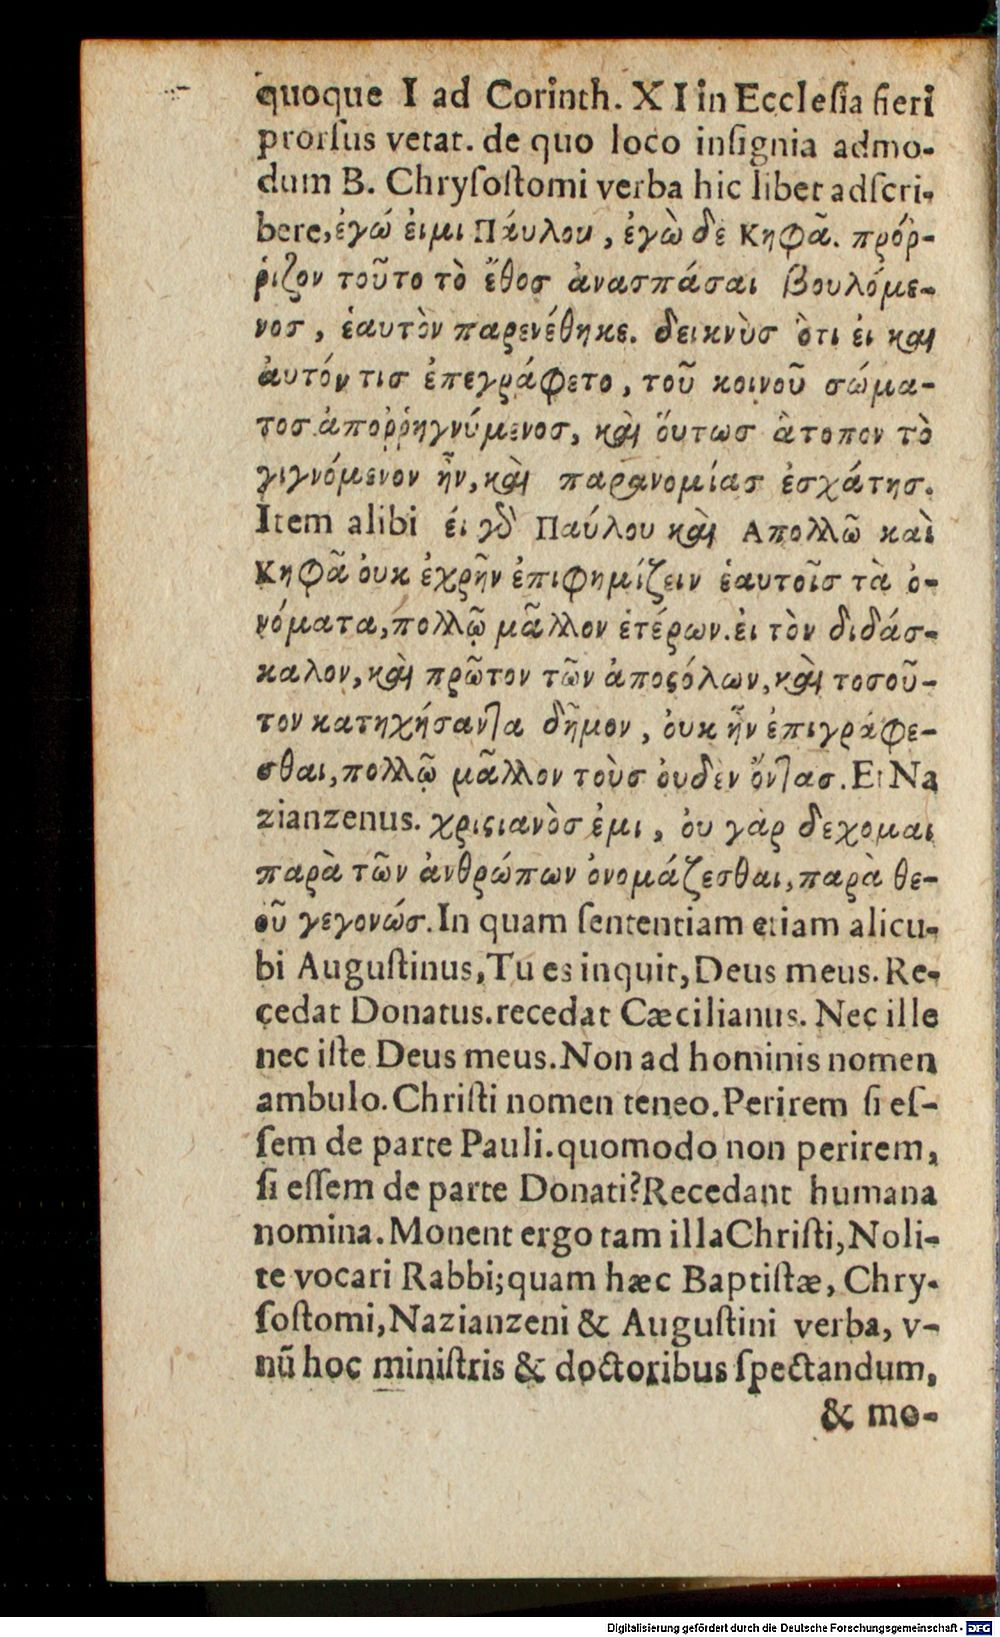 quoque I ad Corinth. XI in Ecclesia fieri
prorſus vetat. de quo loco inſignia admo-
dum B. Chryſoſtomi verba hic libet adſcri-
bere, ἐγώ ἐιμι Παύλου, ἐγὼ δε Κηφᾶ. πρόρ-
ῥιζον τοῦτο τὸ ἔθοσ ἀνασπάσαι βουλόμε-
νοσ, ἑαυτὸν παρενέθηκε. δεικνὺσ ὃτι ἐι καὶ
ἀυτόν τισ ἐπεγράφετο, τοῦ κοινοῦ σώμα-
τοσ ἀποῤῥηγνύμενοσ, καὶ ὅυτωσ ἂτοπον τὸ
γιγνόμενον ἦν, καὶ παρανομίασ ἐσχάτησ.
Item alibi ἐί γδ Παύλου καὶ Απολλῶ καὶ
Κηφᾶ ὀυκ ἐχρῆν ἐπιφημίζειν ἑαυτοῖσ τὰ ὀ-
νόματα, πολλῷ μᾶλλον ἑτέρων. ἐι τὸν διδάσ-
καλον, καὶ πρῶτον τῶν ἀποςόλων, καὶ τοσοῦ-
τον κατηχήσαντα δῆμον, ὀυκ ἦν ἐπιγράφε-
σθαι, πολλῷ μᾶλλον τοὺσ ὀυδεν ὄντασ. Et Na
zianzenus. χριςιανὸσ ἐμι, ὀυ γὰρ δεχομαι
παρὰ τῶν ἀνθρώπων ὀνομάζεσθαι, παρὰ θε-
οῦ γεγονώσ. In quam ſententiam etiam alicu-
bi Auguſtinus, Tu es inquit, Deus meus. Re-
cedat Donatus. recedat Cæcilianus. Nec ille
nec iſte Deus meus. Non ad hominis nomen
ambulo. Chriſti nomen teneo. Perirem ſi eſ-
ſem de parte Pauli. quomodo non perirem,
ſi eſſem de parte Donati? Recedant humana
nomina. Monent ergo tam illa Chriſti, Noli-
te vocari Rabbi; quam hæc Baptiſtæ, Chry-
ſoſtomi, Nazianzeni & Auguſtini verba, v-
nũ hoc miniſtris & doctoribus ſpectandum,
& mo-
Digitalisierung gefördert durch die Deutsche Forschungsgemeinschaft - DFG